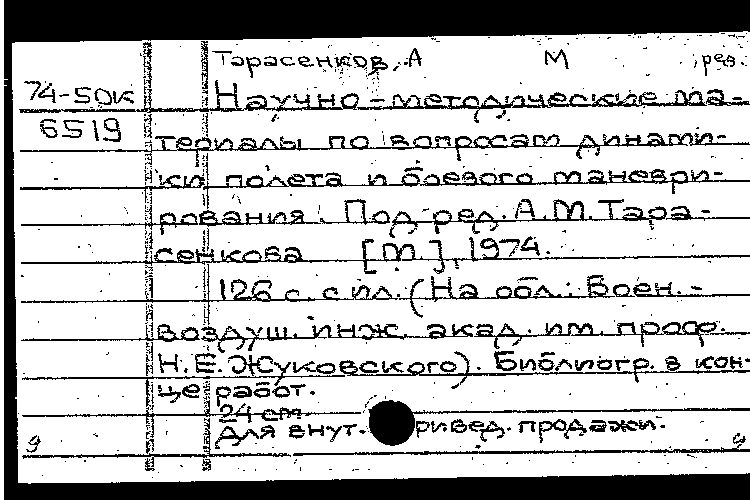 Тарасенков, А М ред.
74-50к Научно-методические ма-
6519
териалы по вопросам динами-
ки полета и боевого маневри-
рования. Под ред. А.М. Тара-
сенкова [М.], 1974.
126 с. с ил. (На обл.: Воен.-
воздуш. инж. акад. им. проф.
Н.Е. Жуковского). Библиогр. в кон-
це работ.
24 cm.
Для внут. ривед. продажи.
9 9